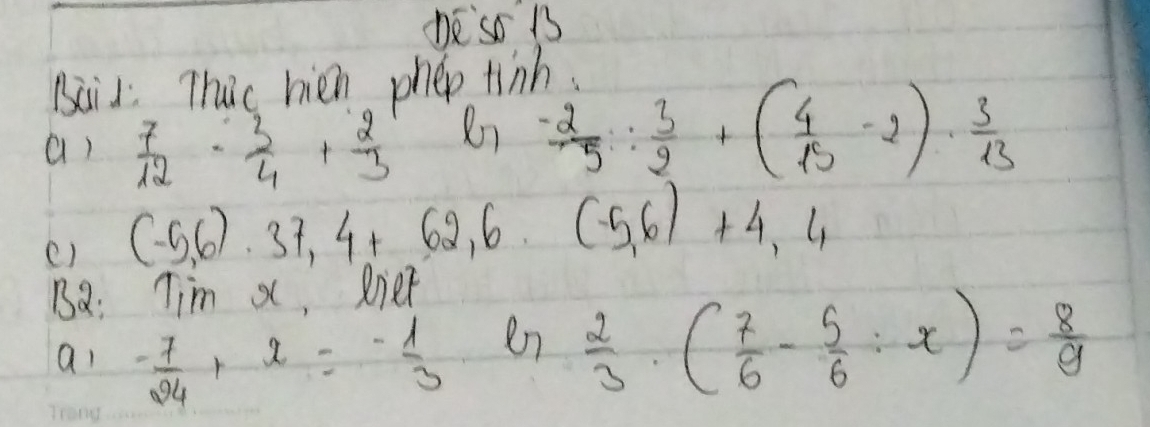 Đề số 13
Bài 1: Thực hiện phép tính.
a, 7/12 - 3/4 + 2/3 b, -2/5 : 3/2 + (4/15 - 2) . 3/13
c, (-5,6) . 37,4 + 62,6 . (-5,6) + 4,4
B2: Tìm x, biết
a, -7/24 + x = -1/3 b, 2/3 . (7/6 - 5/6 : x) = 8/9
Trang